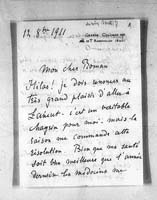 12 8bre 1911
Mon cher Roman
Hélas! je dois renoncer au
très grand plaisir d'aller à
c'est un véritable
chagrin pour moi, mais la
raison me commande cette
résolution. Bien que ma santé
soit bien meilleure que l'année
dernière les médecins me